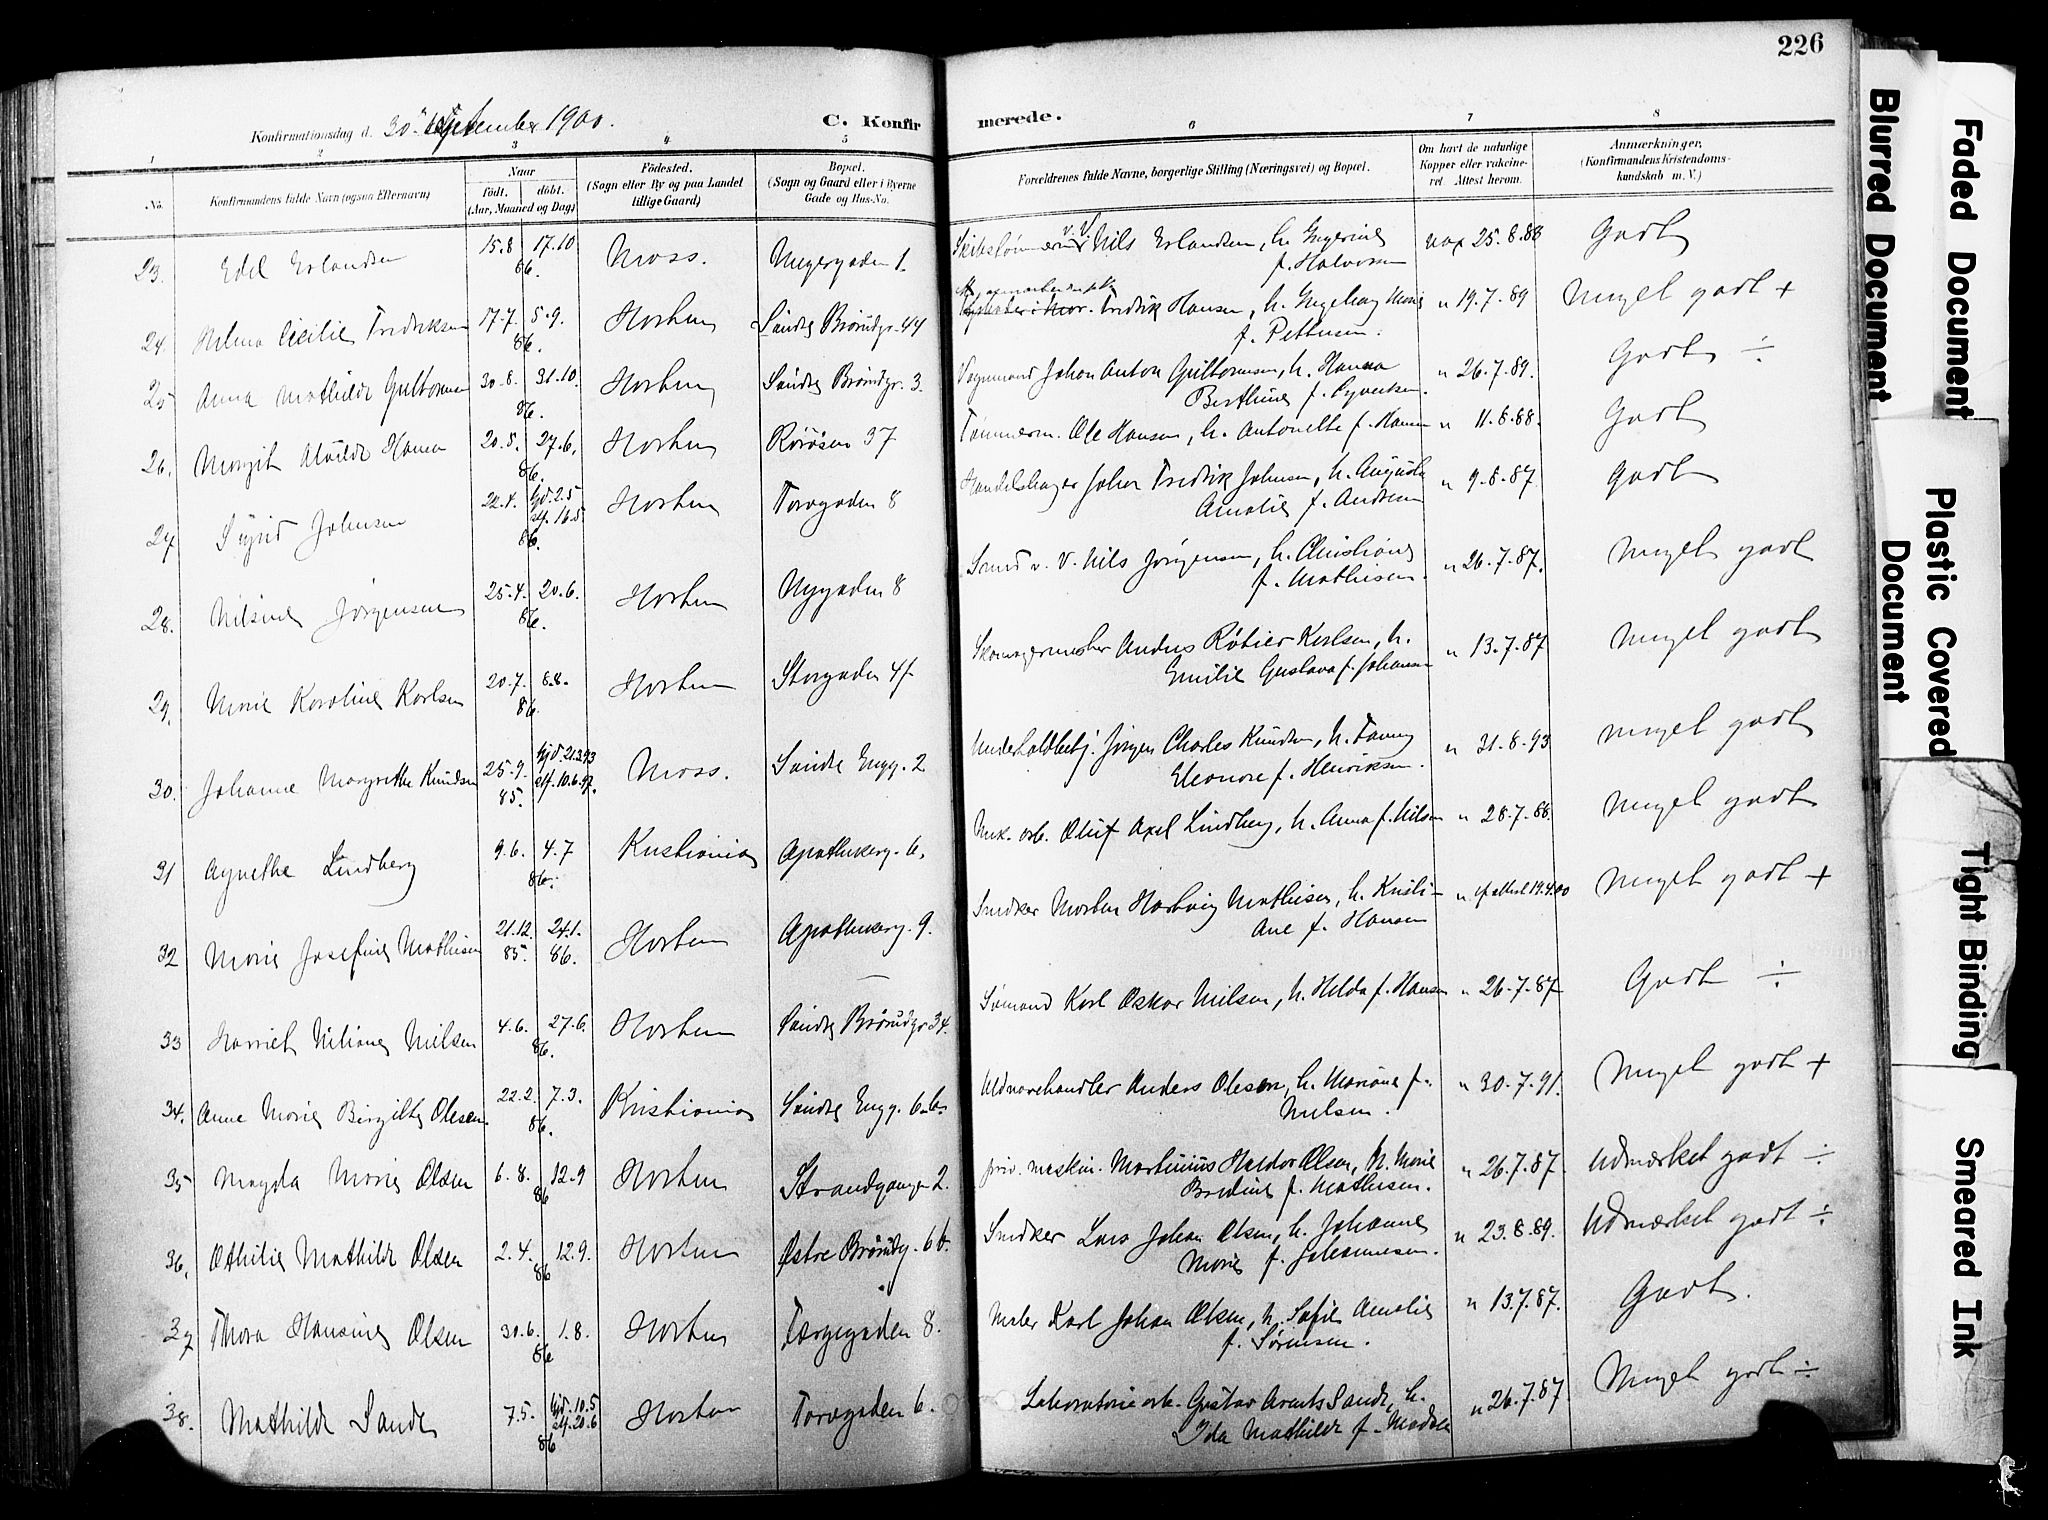 226
Konfirmationsdag d. 30te September 1900.
C. Konfirmerede.
1 2 3 4 5 6 7 8
No.
Konfirmandens fulde Navn (ogsaa Efternavn)
Naar
født. døbt.
(Aar, Maaned og Dag)
Fødested.
(Sogn eller By og paa Landet
tillige Gaard)
Bopæl.
(Sogn og Gaard eller i Byerne
Gade og Hus-No.
Forældrenes fulde Navne, borgerlige Stilling (Næringsvei) og Bopæl.
Om havt de naturlige
Kopper eller vakcine-
ret Attest herom.
Anmærkninger,
(Konfirmandens Kristendoms-
kundskab m. V.)
23. Edel Erlandsen 15.8 17.10 86. Moss. 1. Nils Erlandsen, h. Ingerine f. Halvorsen vax 25.8.88 Godt
24. Helma Cecilie Fredriksen 17.7. 5.9. 86. Horten Søndre Brårudgr. 44 Fredrik Hansen, h. Ingeborg Marie f. Pettersen. " 19.7.89 Meget godt +
25 Anna Mathilde Guttormsen 30.8. 31.10. 86. Horten Søndre Brårudgr. 3. Vognmand Johan Anton Guttormsen, h. Hanna Berthine f. Syvertsen. " 26.7.89. Godt ÷
26. Margit Alvilde Hansen 20.5. 27.6. 86. Horten Røråsen 37 Tømmerm. Ole Hansen, h. Antonette f. Hansen " 11.8.88. Godt
27 Sigrid Johnsen 22.4. Gjd. 2.5 stf. 16.5 86. Horten Torvegaden 8 Johan Fredrik Johnsen, h. Augusta Amalie f. Andersen " 9.8.87. Godt
28. Nilsine Jørgensen 25.4. 20.6. 86. Horten Nygaden 8 Smed v. V. Nils Jørgensen, h. Christiane f. Mathisen. " 26.7.87. Meget godt
29. Marie Karoline Karlsen 20.7. 8.8. 86. Horten Storgaden 4f Skomagermester Anders Karlsen, h. Emilie Gustava f. Johansen " 13.7.87 Meget godt
30. Johanne Margrethe Knudsen 25.9. 85. Gjd. 21.3.93 Moss. Søndre Engg. 2 Jørgen Charles Knudsen, h. Fanny Eleonore f. Henriksen. " 31.8.93 Meget godt
31 Agnethe Lindberg 9.6. 4.7 86. Kristiania Apothekerg. 6. Mek. arb. Oluf Axel Lindberg, h. Anna f. Nilsen " 28.7.88. Meget godt
32 Marie Josefine Mathisen 21.12. 85. 24.1. 86. Horten Apothekerg. 9. Snedker Morten Hartvig Mathisen, h. Kristiane f. Hansen " attest 19.4.00 Meget godt +
33 Harriet Nilsen 4.6. 27.6. 86. Horten Søndre Brårudgr 34. Sømand Karl Oskar Nilsen, h. Hilda f. Hansen " 26.7.87 Godt ÷
34. Anne Marie Birgitte Olesen. 22.2. 7.3. 86. Kristiania Søndre Engg. 6b. Uldvarehandler Anders Olesen, h. Mariane f. Nielsen. " 30.7.91. Meget godt +
35 Magda Marie Olsen 6.8. 12.9 86 Horten Strandgangen 2. priv. maskin. Martinius Haldor Olsen, h. Marie Bredine f. Mathisen. " 26.7.87. Udmærket godt ÷
36. Othilie Mathilde Olsen 2.4. 12.9. 86 Horten Østre Brårudg. 6b. Snedker Lars Johan Olsen, h. Johanne Marie f. Johannesen. " 23.8.89. Udmærket godt ÷
37 Thora Hansine Olsen 30.6. 1.8. 86 Horten Færgegaden 8. Maler Karl Johan Olsen, h. Sofie Amalie f. Sørensen. " 13.7.87. Godt.
38. Mathilde Sande 7.5. Gjd. 10.5 stf. 20.6 86 Horten Torvegaden 6. Laboratorie arb. Gustav Arents Sande, h. Ida Mathilde f. Madsen " 26.7.87 Meget godt ÷
Faded Document
Blurred Document
Plastic Covered
Document
Tight Binding
Smeared Ink